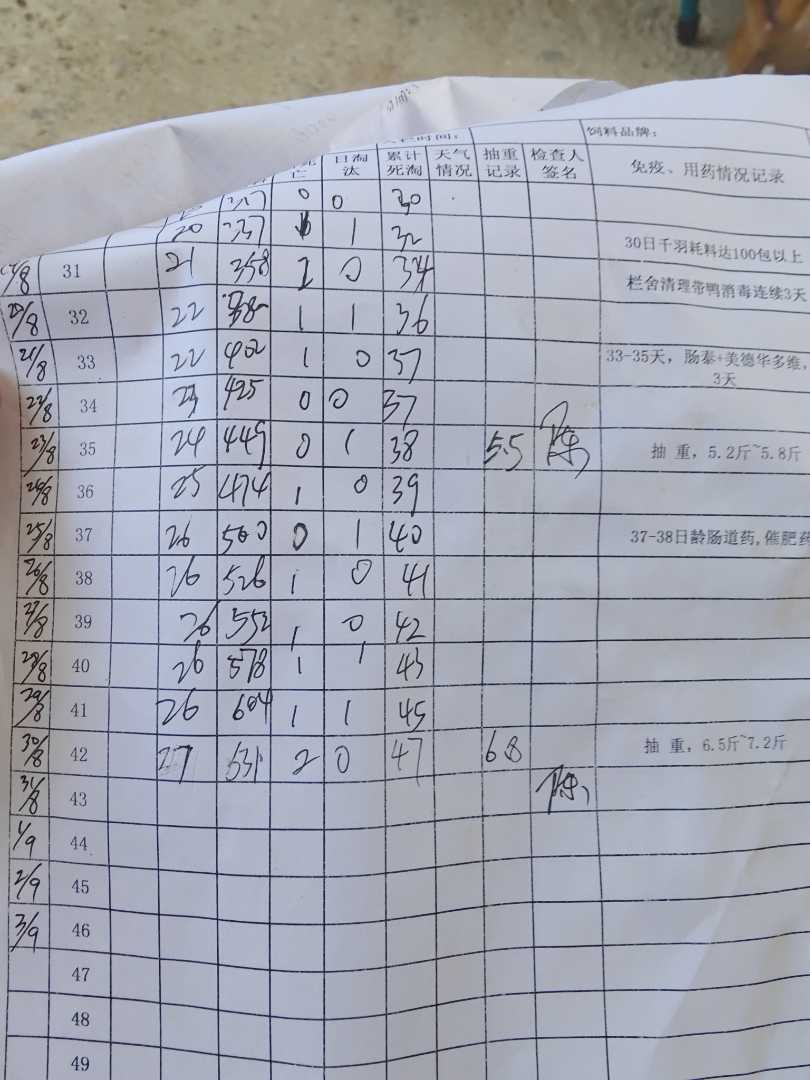 饲料品牌:
亡 日淘汰 累计死淘 天气情况 抽重记录 检查人签名 免疫、用药情况记录
317 0 0 30
20 337 1 32
30日千羽耗料达100包以上
/8 31 21 358 2 0 34
栏舍清理带鸭消毒连续3天
20/8 32 22 380 1 1 36
21/8 33 22 402 1 0 37 33-35天，肠泰+美德华多维，3天
22/8 34 23 425 0 0 37
23/8 35 24 449 0 1 38 5.5 陈 抽 重，5.2斤~5.8斤
24/8 36 25 474 1 0 39
25/8 37 26 500 0 1 40 37-38日龄肠道药,催肥药
26/8 38 26 526 1 0 41
27/8 39 26 552 1 0 42
28/8 40 26 578 1 1 43
29/8 41 26 604 1 1 45
30/8 42 27 631 2 0 47 68 抽 重，6.5斤~7.2斤
31/8 43 陈
1/9 44
2/9 45
3/9 46
47
48
49